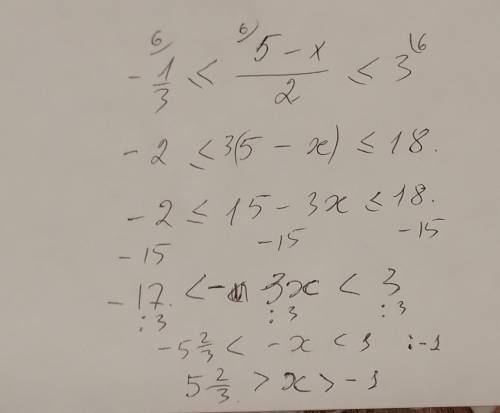 6) 6) (6
-1/3 ≤ (5-x)/2 ≤ 3
-2 ≤ 3(5-x) ≤ 18.
-2 ≤ 15-3x ≤ 18.
-15 -15 -15
-17. < -3x < 3
:3 :3 :3
-5 2/3 < -x < 1 :-1
5 2/3 > x > -1